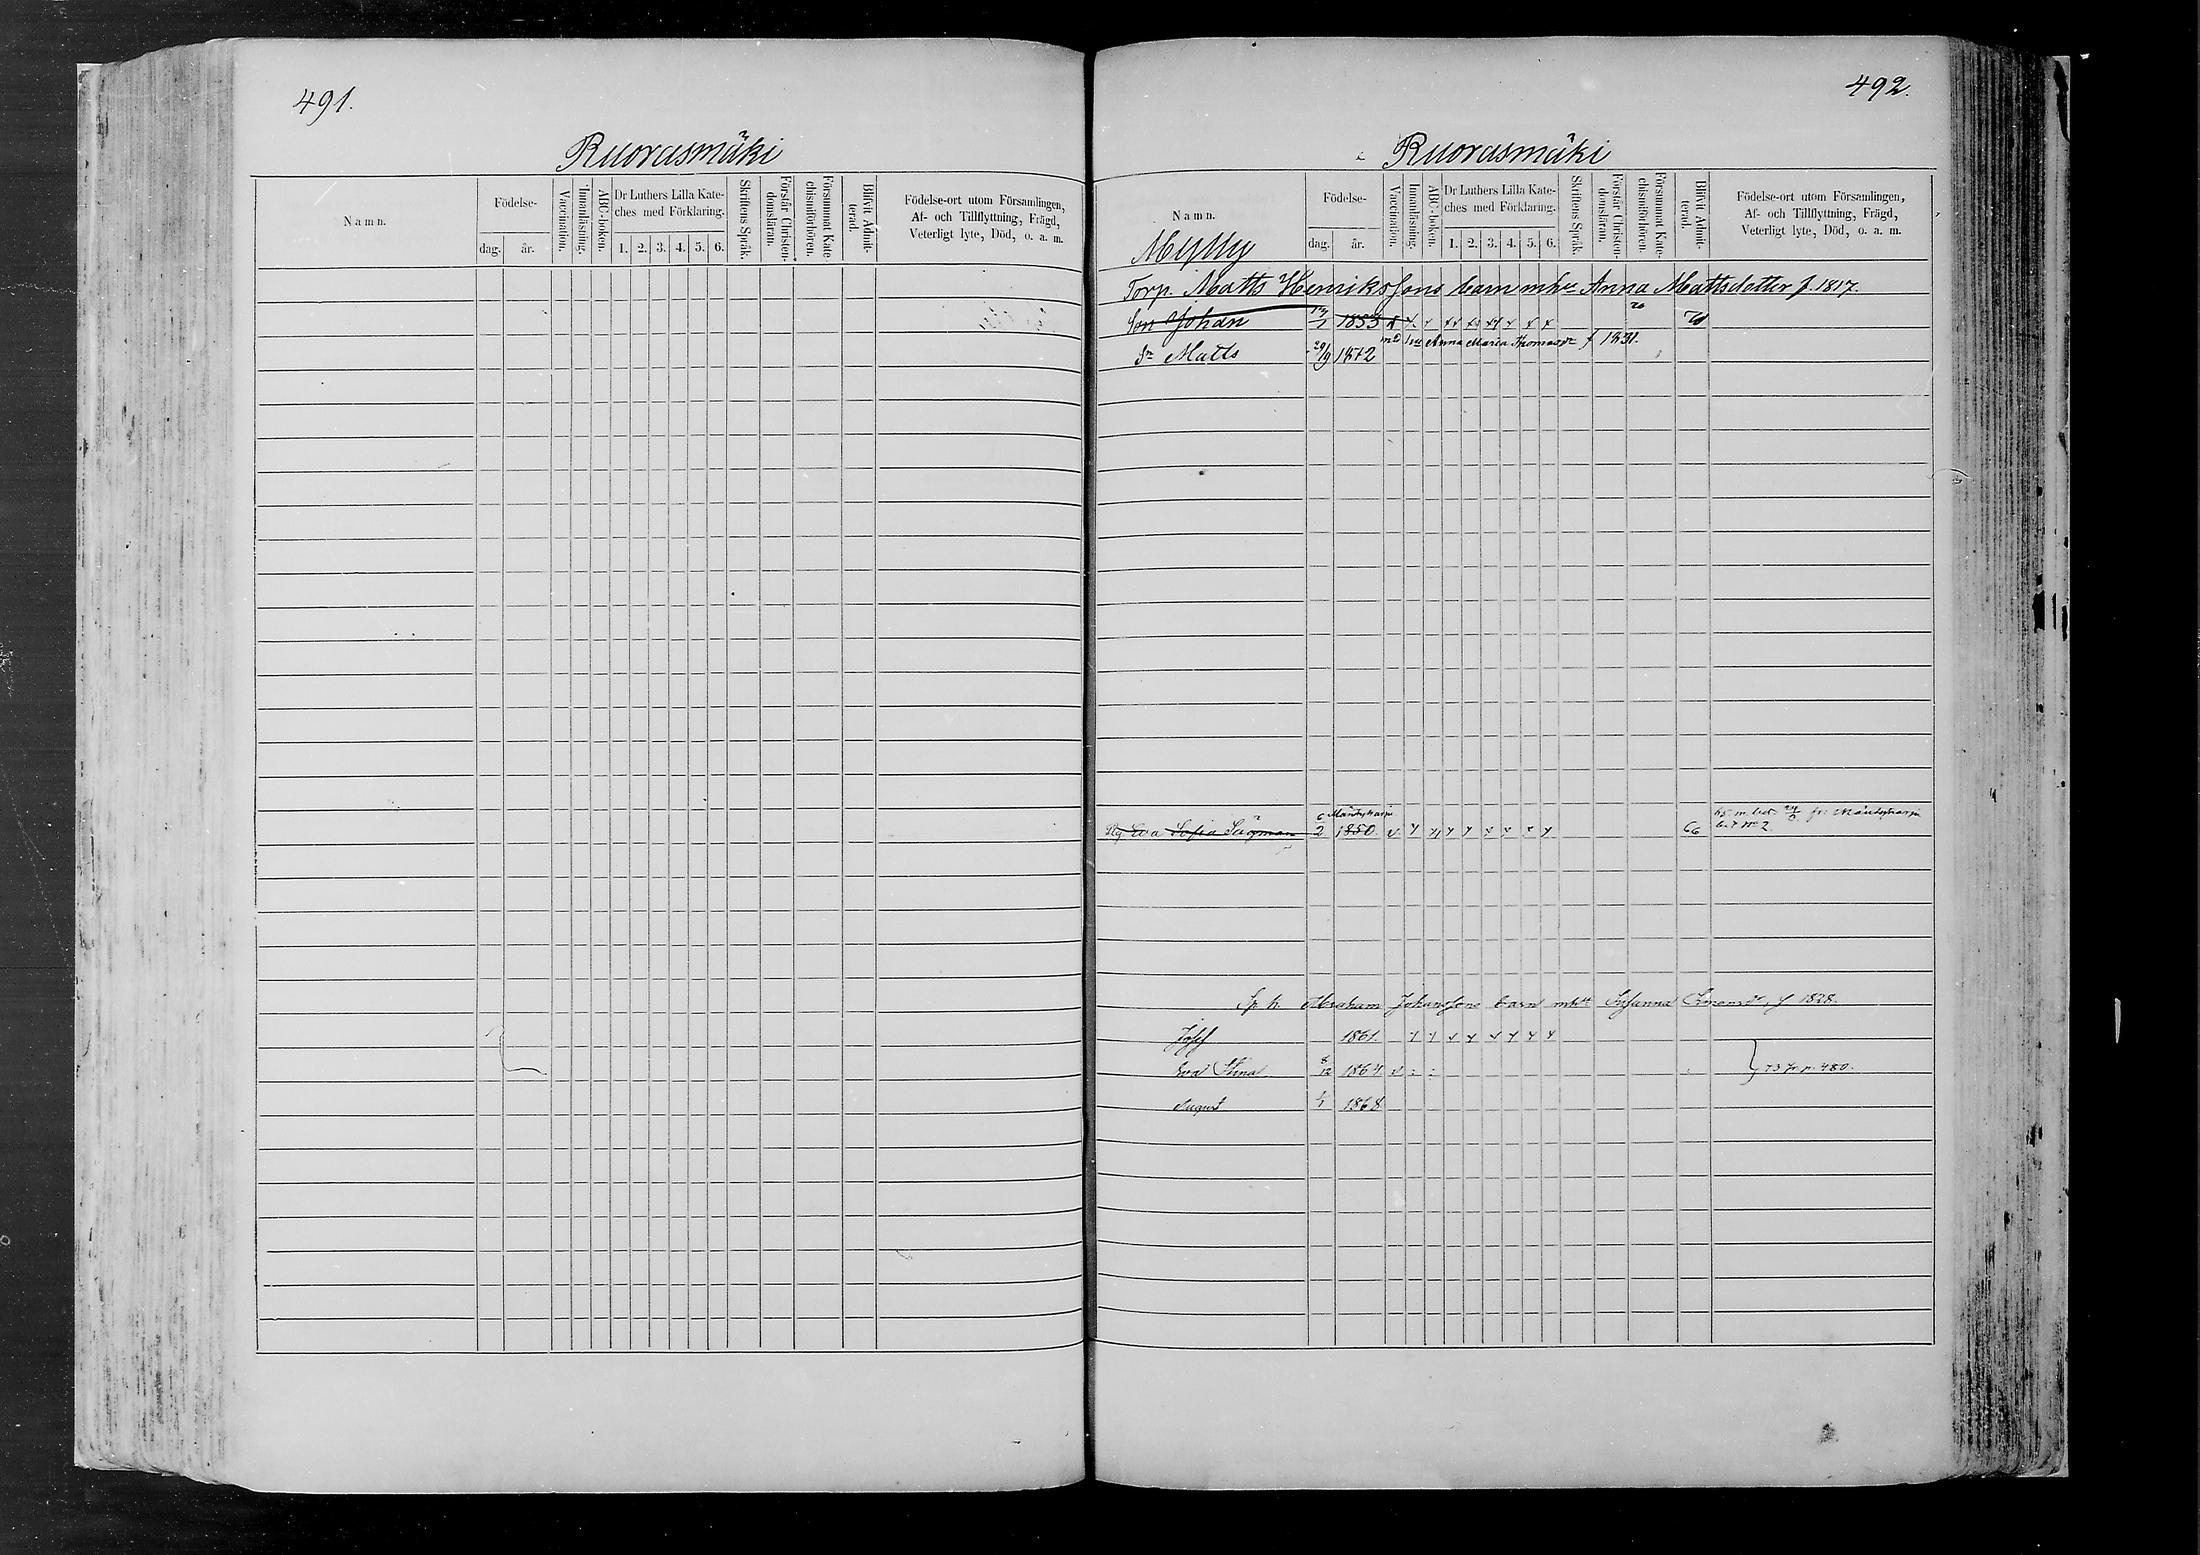 491.
Ruorasmäki
Namn.
Födelse-
dag. år.
Vaccination.
Innanläsning.
ABC-boken.
Dr Luthers Lilla Kate-
ches med Förklaring.
1. 2. 3. 4. 5. 6.
Skriftens Språk.
Förstår Christen-
domsläran.
Försummat Kate-
chismiförhören.
Blifvit Admit-
terad.
Födelse-ort utom Församlingen,
Af- och Tillflyttning, Frägd,
Veterligt lyte, Död, o. a. m.
492.
Ruorasmäki
Namn.
Mylly
Födelse-
dag. år.
Vaccination.
Innanläsning.
ABC-boken.
Dr Luthers Lilla Kate-
ches med Förklaring.
1. 2. 3. 4. 5. 6.
Skriftens Språk.
Förstår Christen-
domsläran.
Försummat Kate-
chismiförhören.
Blifvit Admit-
terad.
Födelse-ort utom Församlingen,
Af- och Tillflyttning, Frägd,
Veterligt lyte, Död, o. a. m.
Torp. Matts Henrikssons barn mhu Anna Mattsdotter f. 1817.
Son Johan 1853
m 2 hu Anna Maria Thomasdr f 1831.
Sn Matts 29/9 1872
Mäntyharju
Eva Sofia 6/2 1850. 66 fr. Mäntyharju
Abraham Johanssons barn Susanna f 1828.
Josef 1861.
Eva Stina 8/12 1864 73 fr. p. 480.
August 1868